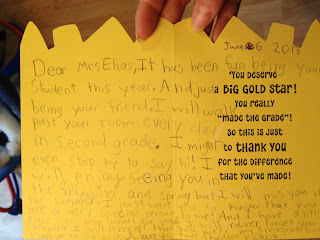 June 6 2013
Dear Mrs Elias, It has been fun being your
student this year. And just
being your friend. I will walk
past your room every day
in second grade. I might
even stop by to say hi! I
will enjoy seeing you in
the and spring but I will miss you in
the summer. I know that you
are a very special person
to me! And I have a lit
never forget you
"You deserve
a BIG GOLD star!
You really
"made the grade"!
So this is just
to THANK YOU
for the difference
that you've made!